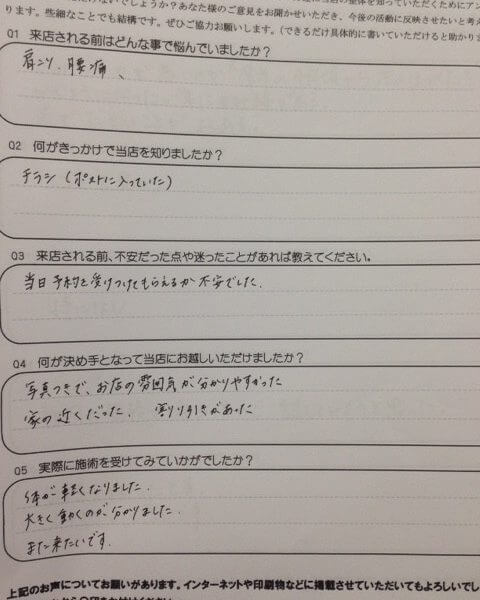 ります。些細なことでも結構です。ぜひご協力お願いします。(できるだけ具体的に書いていただけると助かりま
Q1 来店される前はどんな事で悩んでいましたか?
肩こり、腰痛、
Q2 何がきっかけで当店を知りましたか?
チラシ(ポストに入っていた)
Q3 来店される前、不安だった点や迷ったことがあれば教えてください。
当日予約を受けつけてもらえるか不安でした.
Q4 何が決め手となって当店にお越しいただけましたか?
写真つきで、お店の雰囲気が分かりやすかった
家の近くだった、 割り引きがあった
Q5 実際に施術を受けてみていかがでしたか?
体が軽くなりました.
大きく動くのが分かりました.
また来たいです.
上記のお声についてお願いがあります。インターネットや印刷物などに掲載させていただいてもよろしいでし